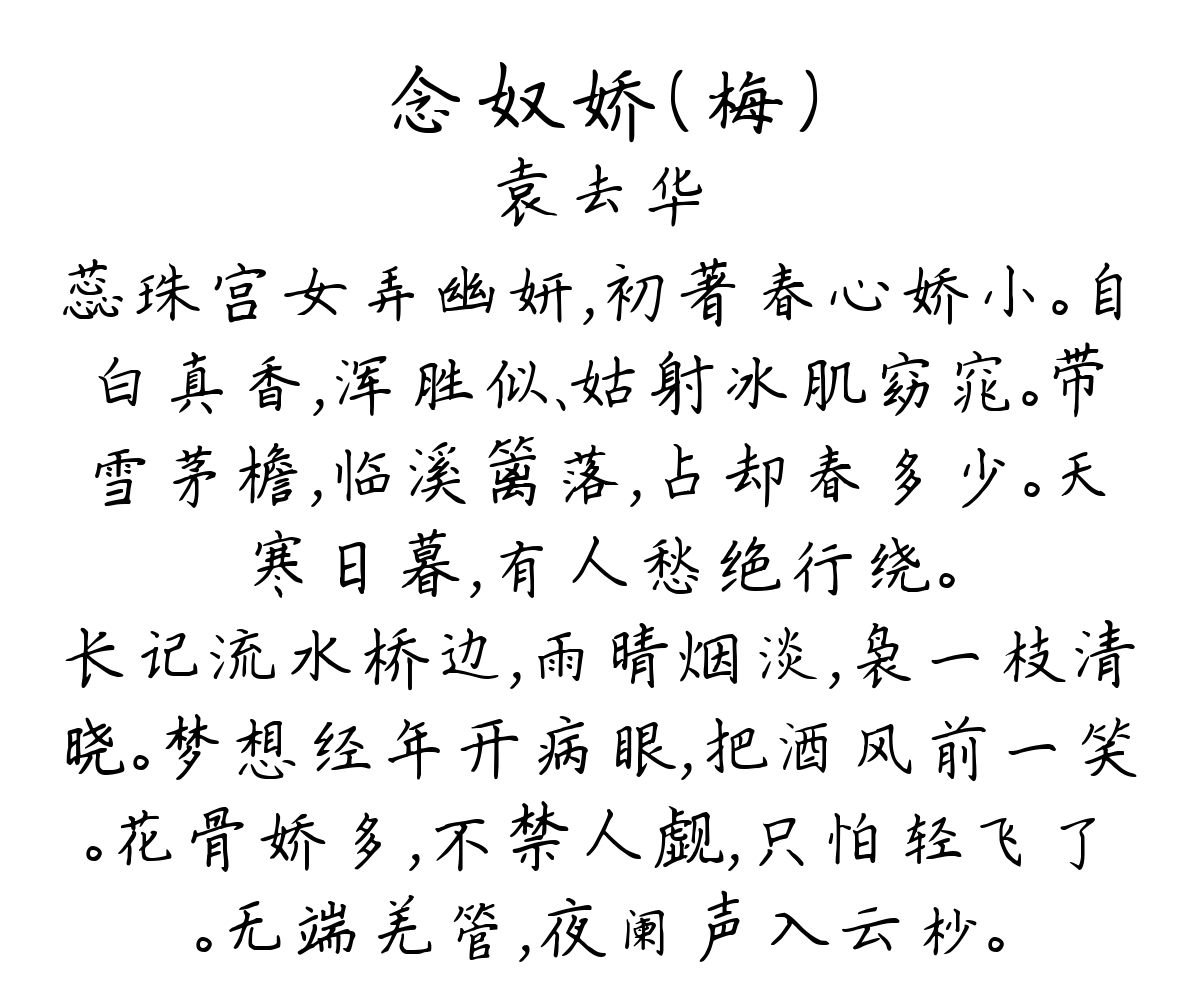 念奴娇(梅)
袁去华
蕊珠宫女弄幽妍,初著春心娇小。自
白真香,浑胜似、姑射冰肌窈窕。带
雪茅檐,临溪篱落,占却春多少。天
寒日暮,有人愁绝行绕。
长记流水桥边,雨晴烟淡,袅一枝清
晓。梦想经年开病眼,把酒风前一笑
。花骨娇多,不禁人觑,只怕轻飞了
。无端羌管,夜阑声入云杪。